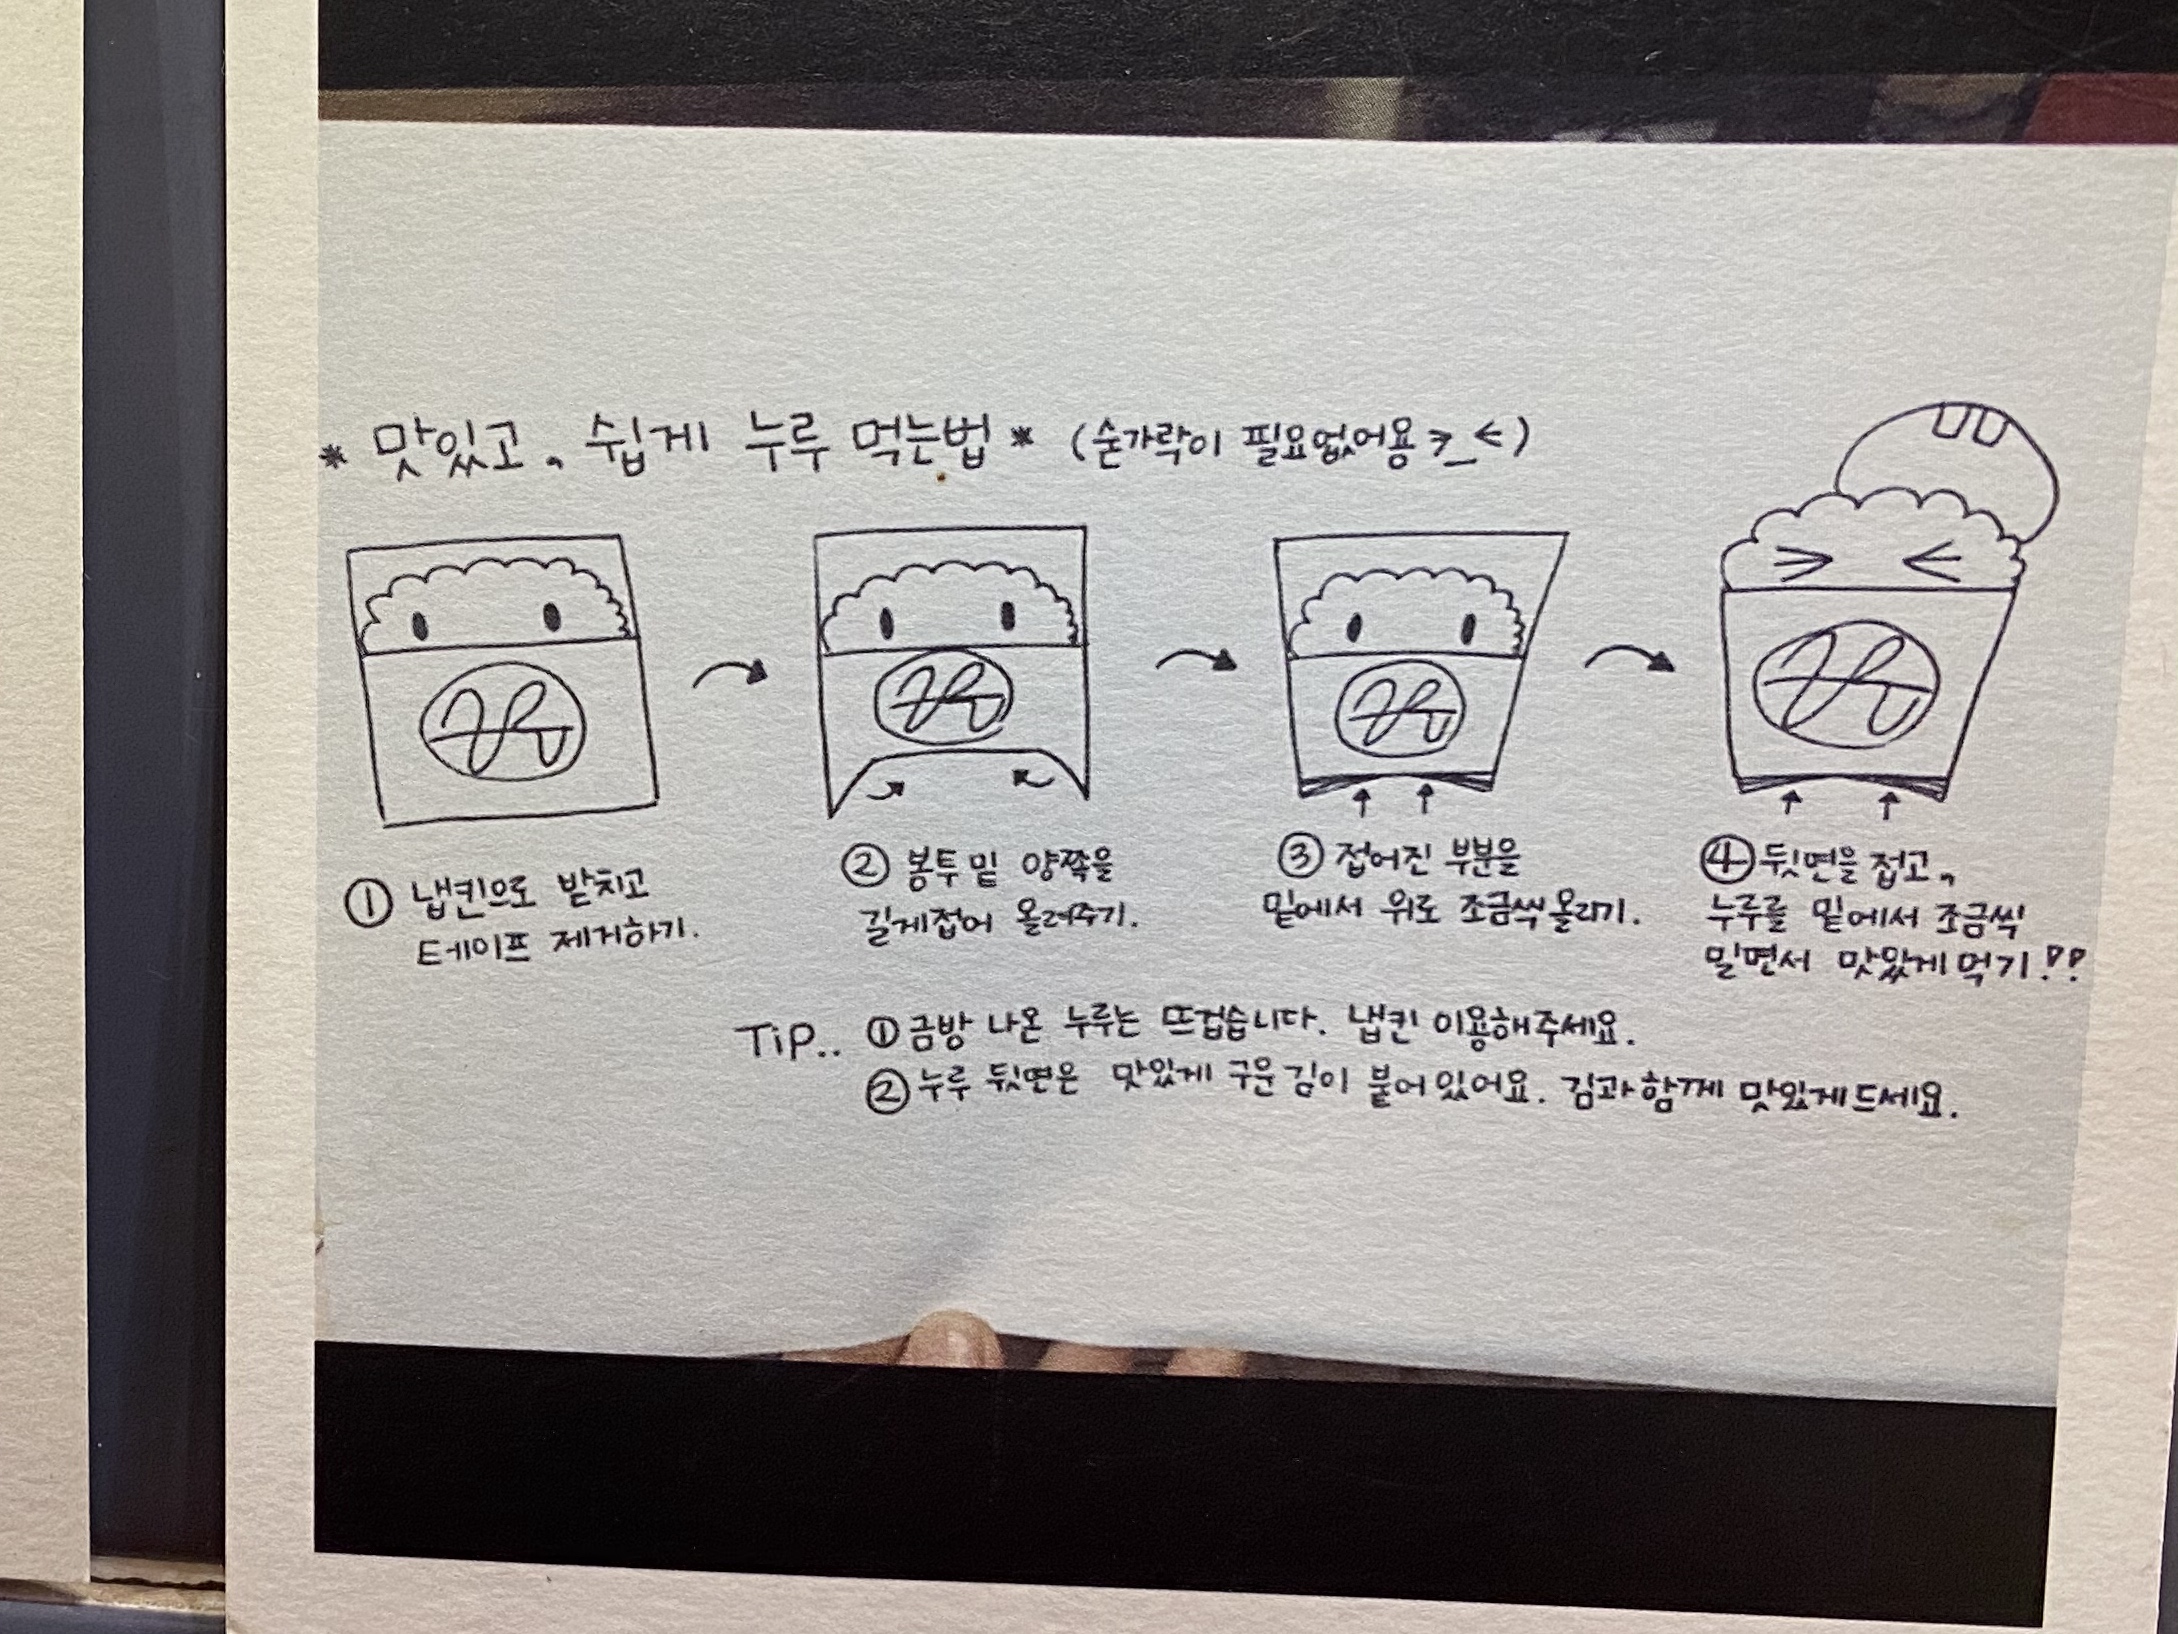 * 맛있고, 쉽게 누루 먹는법 * (숟가락이 필요없어용 >_<)
① 냅킨으로 받치고
테이프 제거하기.
② 봉투 밑 양쪽을
길게접어 올려주기.
③ 접어진 부분을
밑에서 위로 조금씩 올리기.
④ 뒷면을 접고,
누루를 밑에서 조금씩
밀면서 맛있게 먹기!!
TiP.. ① 금방 나온 누루는 뜨겁습니다. 냅킨 이용해주세요.
② 누루 뒷면은 맛있게 구운 김이 붙어있어요. 김과 함께 맛있게드세요.